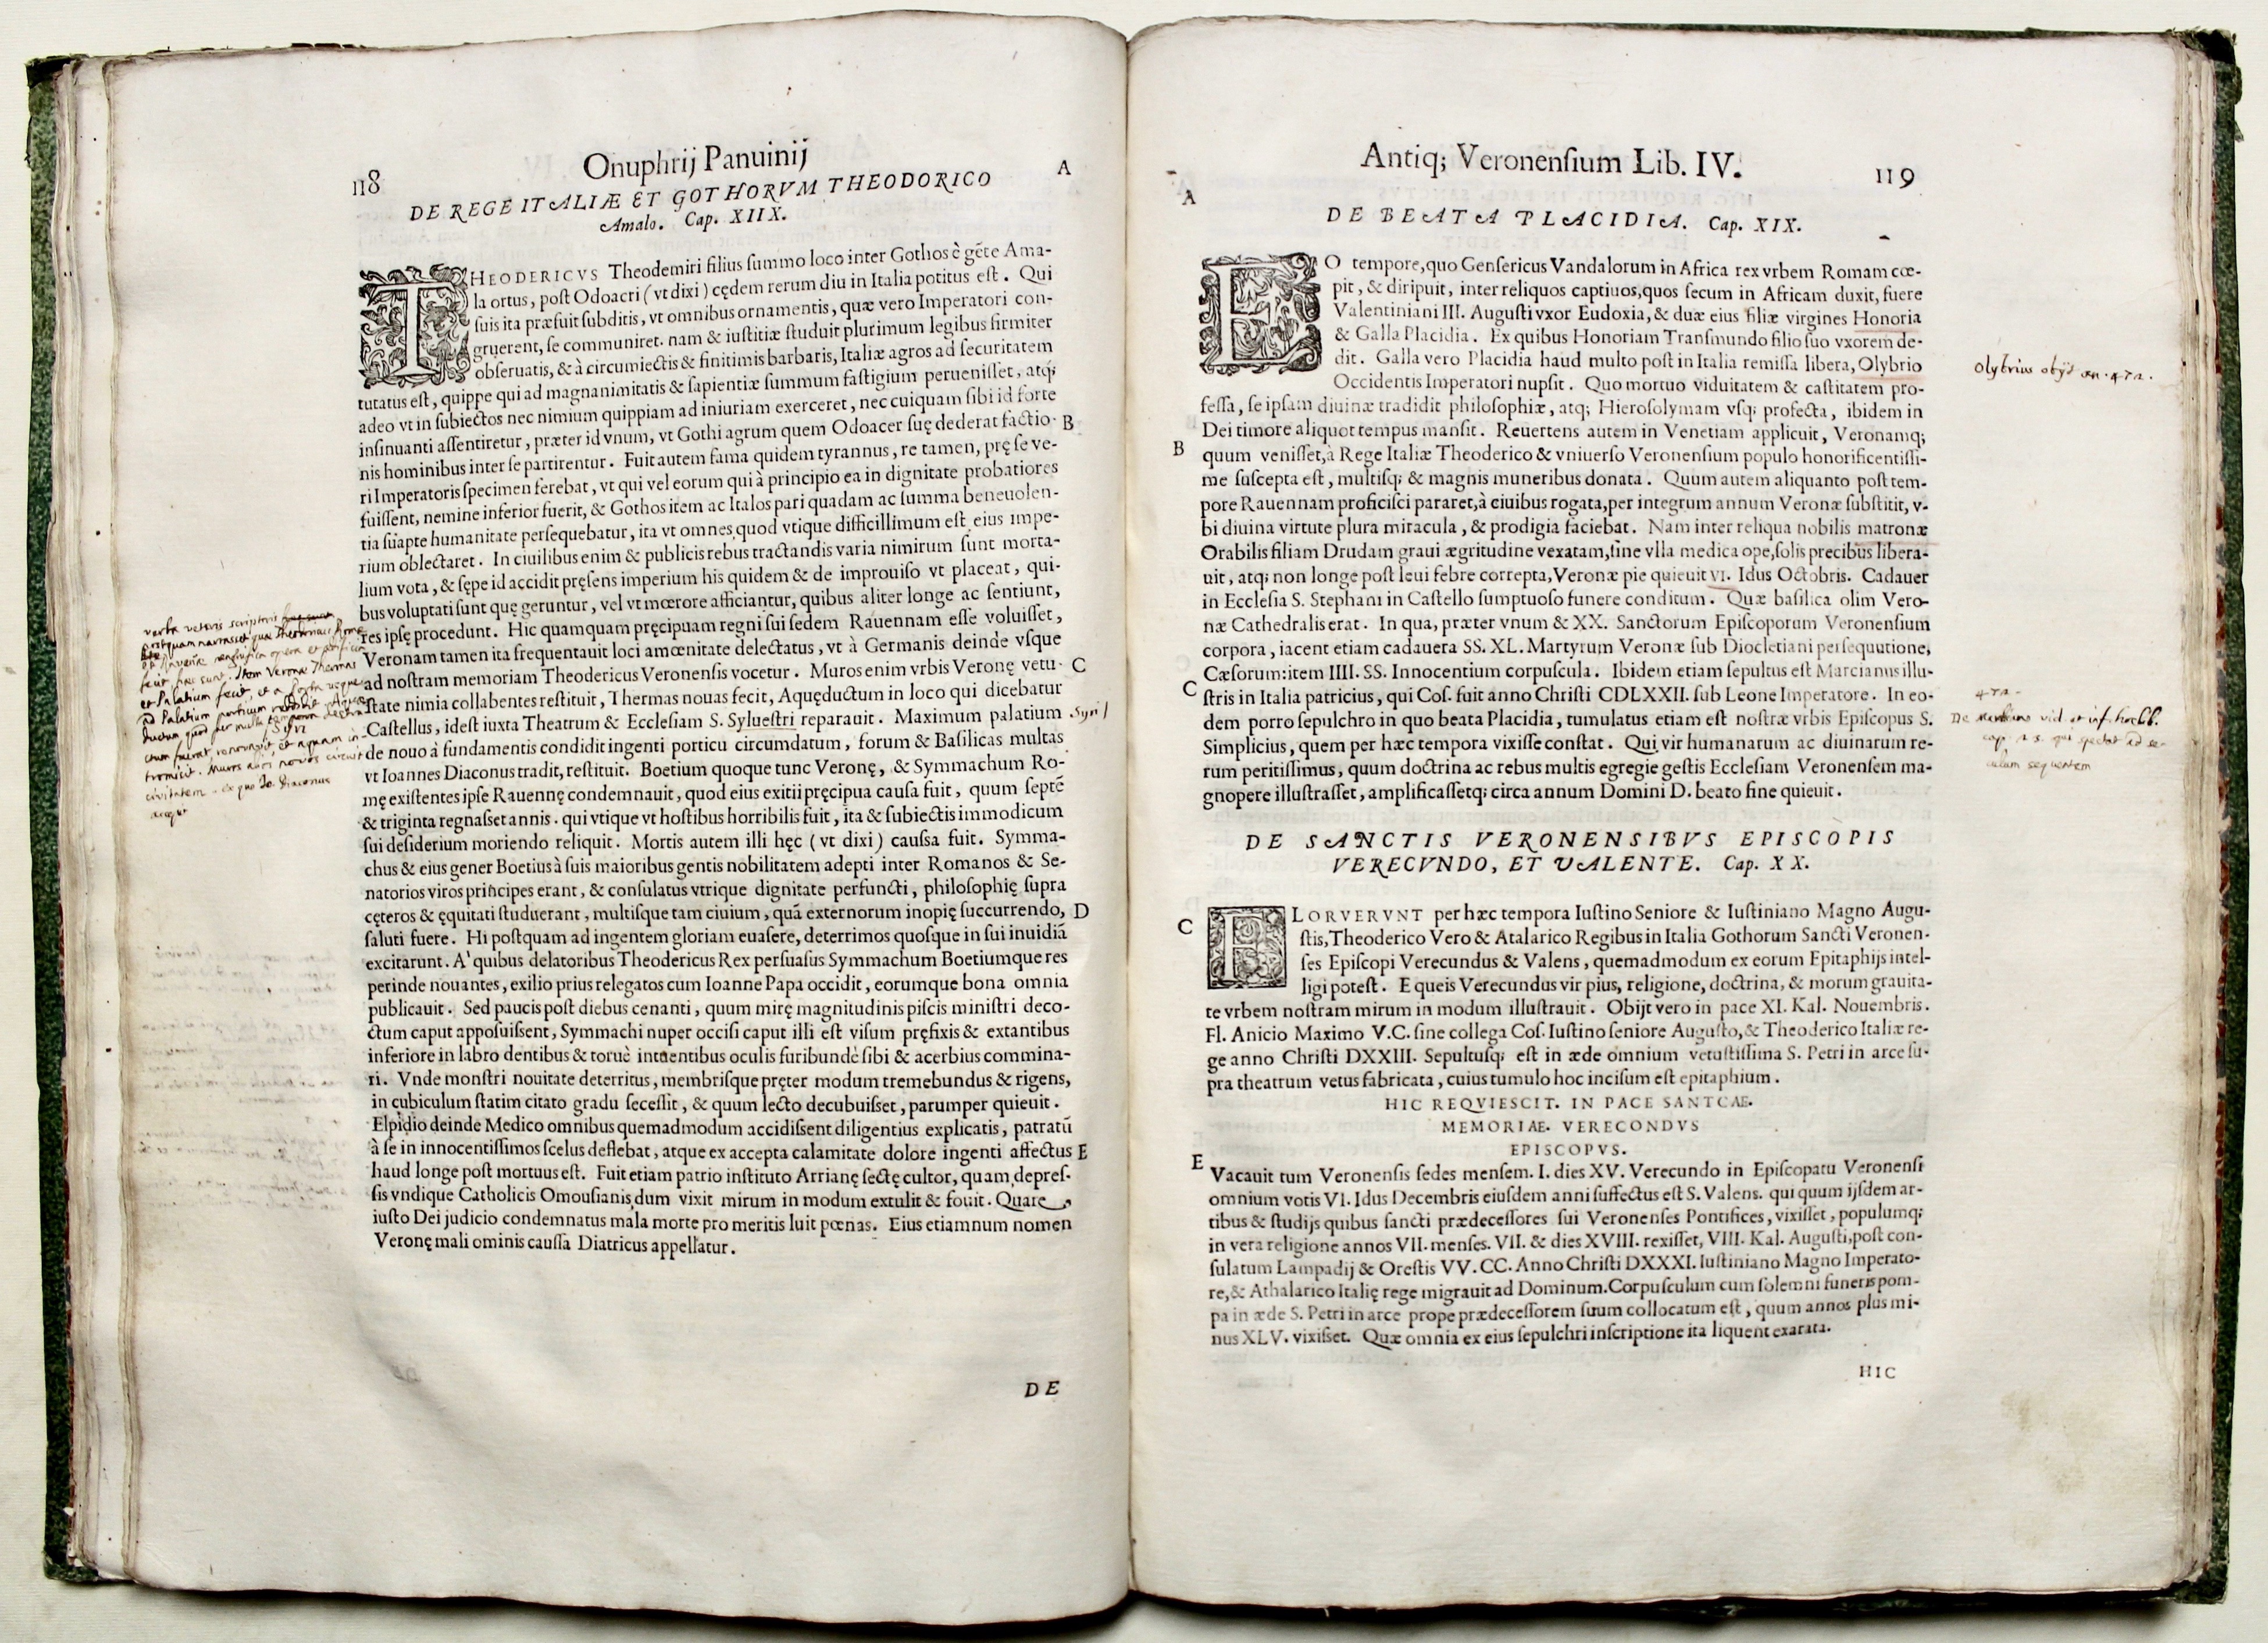 118
Onuphrij Panuinij
A
DE REGE ITALIÆ ET GOTHORVM THEODORICO
Amalo. Cap. XIIX.
THEODERICVS Theodemiri filius summo loco inter Gothos è gẽte Ama-
la ortus, post Odoacri (vt dixi) cędem rerum diu in Italia potitus est. Qui
suis ita præfuit subditis, vt omnibus ornamentis, quæ vero Imperatori con-
gruerent, se communiret. nam & iustitiæ studuit plurimum legibus firmiter
obseruatis, & à circumiectis & finitimis barbaris, Italiæ agros ad securitatem
tutatus est, quippe qui ad magnanimitatis & sapientiæ summum fastigium peruenisset, atq;
adeo vt in subiectos nec nimium quippiam ad iniuriam exerceret, nec cuiquam sibi id forte
insinuanti assentiretur, præter id vnum, vt Gothi agrum quem Odoacer suę dederat factio- B
nis hominibus inter se partirentur. Fuit autem fama quidem tyrannus, re tamen, prę se ve-
ri Imperatoris specimen ferebat, vt qui vel eorum qui à principio ea in dignitate probatiores
fuissent, nemine inferior fuerit, & Gothos item ac Italos pari quadam ac summa beneuolen-
tia suapte humanitate persequebatur, ita vt omnes, quod vtique difficillimum est, eius impe-
rium oblectaret. In ciuilibus enim & publicis rebus tractandis varia nimirum sunt morta-
lium vota, & sępe id accidit pręsens imperium his quidem & de improuiso vt placeat, qui-
bus voluptati sunt quę geruntur, vel vt mœrore afficiantur, quibus aliter longe ac sentiunt,
res ipsę procedunt. Hic quamquam pręcipuam regni sui sedem Rauennam esse voluisset,
Veronam tamen ita frequentauit loci amœnitate delectatus, vt à Germanis deinde vsque
ad nostram memoriam Theodericus Veronensis vocetur. Muros enim vrbis Veronę vetu- C
state nimia collabentes restituit, Thermas nouas fecit, Aquęductum in loco qui dicebatur
Castellus, idest iuxta Theatrum & Ecclesiam S. Syluestri reparauit. Maximum palatium
de nouo à fundamentis condidit ingenti porticu circumdatum, forum & Basilicas multas
vt Ioannes Diaconus tradit, restituit. Boetium quoque tunc Veronę, & Symmachum Ro-
mę existentes ipse Rauennę condemnauit, quod eius exitij pręcipua causa fuit, quum septẽ
& triginta regnasset annis. qui vtique vt hostibus horribilis fuit, ita & subiectis immodicum
sui desiderium moriendo reliquit. Mortis autem illi hęc (vt dixi) caussa fuit. Symma-
chus & eius gener Boetius à suis maioribus gentis nobilitatem adepti inter Romanos & Se-
natorios viros principes erant, & consulatus vtrique dignitate perfuncti, philosophię supra
cęteros & ęquitati studuerant, multisque tam ciuium, quã externorum inopię succurrendo, D
saluti fuere. Hi postquam ad ingentem gloriam euasere, deterrimos quosque in sui inuidiã
excitarunt. A' quibus delatoribus Theodericus Rex persuasus Symmachum Boetiumque res
perinde nouantes, exilio prius relegatos cum Ioanne Papa occidit, eorumque bona omnia
publicauit. Sed paucis post diebus cenanti, quum mirę magnitudinis piscis ministri deco-
ctum caput apposuissent, Symmachi nuper occisi caput illi est visum pręfixis & extantibus
inferiore in labro dentibus & toruè intuentibus oculis furibundè sibi & acerbius commina-
ri. Vnde monstri nouitate deterritus, membrisque pręter modum tremebundus & rigens,
in cubiculum statim citato gradu secessit, & quum lecto decubuisset, parumper quieuit.
Elpidio deinde Medico omnibus quemadmodum accidissent diligentius explicatis, patratũ
à se in innocentissimos scelus deflebat, atque ex accepta calamitate dolore ingenti affectus E
haud longe post mortuus est. Fuit etiam patrio instituto Arrianę sectę cultor, quam depres-
sis vndique Catholicis Omousianis, dum vixit mirum in modum extulit & fouit. Quare
iusto Dei judicio condemnatus mala morte pro meritis luit pœnas. Eius etiamnum nomen
Veronę mali ominis caussa Diatricus appellatur.
DE
verba veteris scriptoris
postquam narrasset quæ Theodoricus Romæ
Ravennæ magnifica opera et ædificia
fecit hæc sunt. Item Veronæ Thermas
et Palatium fecit, et a porta usque
ad Palatium porticum reddidit. Aquæ
ductum quod per multa tempora destru
ctum fuerat, renovavit, et aquam in-
tromisit. Muros alios novos circuit
civitatem. ex quo Io. Diaconus
accepit
Syri
Antiq; Veronensium Lib. IV.
119
A
DE BEATA PLACIDIA. Cap. XIX.
EO tempore, quo Gensericus Vandalorum in Africa rex vrbem Romam cœ-
pit, & diripuit, inter reliquos captiuos, quos secum in Africam duxit, fuere
Valentiniani III. Augusti vxor Eudoxia, & duæ eius filiæ virgines Honoria
& Galla Placidia. Ex quibus Honoriam Transmundo filio suo vxorem de-
dit. Galla vero Placidia haud multo post in Italia remissa libera, Olybrio
Occidentis Imperatori nupsit. Quo mortuo viduitatem & castitatem pro-
fessa, se ipsam diuinæ tradidit philosophiæ, atq; Hierosolymam vsq; profecta, ibidem in
Dei timore aliquot tempus mansit. Reuertens autem in Venetiam applicuit, Veronamq;
B quum venisset, à Rege Italiæ Theoderico & vniuerso Veronensium populo honorificentissi-
me suscepta est, multisq; & magnis muneribus donata. Quum autem aliquanto post tem-
pore Rauennam proficisci pararet, à ciuibus rogata, per integrum annum Veronæ substitit, v-
bi diuina virtute plura miracula, & prodigia faciebat. Nam inter reliqua nobilis matronæ
Orabilis filiam Drudam graui ægritudine vexatam, sine vlla medica ope, solis precibus libera-
uit, atq; non longe post leui febre correpta, Veronæ pie quieuit VI. Idus Octobris. Cadauer
in Ecclesia S. Stephani in Castello sumptuoso funere conditum. Quæ basilica olim Vero-
næ Cathedralis erat. In qua, præter vnum & XX. Sanctorum Episcoporum Veronensium
corpora, iacent etiam cadauera SS. XL. Martyrum Veronæ sub Diocletiani persequutione,
Cæsorum: item IIII. SS. Innocentium corpuscula. Ibidem etiam sepultus est Marcianus illu-
C stris in Italia patricius, qui Cos. fuit anno Christi CDLXXII. sub Leone Imperatore. In eo-
dem porro sepulchro in quo beata Placidia, tumulatus etiam est nostræ vrbis Episcopus S.
Simplicius, quem per hæc tempora vixisse constat. Qui vir humanarum ac diuinarum re-
rum peritissimus, quum doctrina ac rebus multis egregie gestis Ecclesiam Veronensem ma-
gnopere illustrasset, amplificassetq; circa annum Domini D. beato fine quieuit.
Olybrius obijt an. 472.
472.
De Marciano vid. et inf. hoc lib.
cap. 25. qui spectat ad se-
culum sequentem
DE SANCTIS VERONENSIBVS EPISCOPIS
VERECVNDO, ET VALENTE. Cap. XX.
C FLORVERVNT per hæc tempora Iustino Seniore & Iustiniano Magno Augu-
stis, Theoderico Vero & Atalarico Regibus in Italia Gothorum Sancti Veronen-
ses Episcopi Verecundus & Valens, quemadmodum ex eorum Epitaphijs intel-
ligi potest. E queis Verecundus vir pius, religione, doctrina, & morum grauita-
te vrbem nostram mirum in modum illustrauit. Obijt vero in pace XI. Kal. Nouembris.
Fl. Anicio Maximo V.C. sine collega Cos. Iustino seniore Augusto, & Theoderico Italiæ re-
ge anno Christi DXXIII. Sepultusq; est in æde omnium vetustissima S. Petri in arce su-
pra theatrum vetus fabricata, cuius tumulo hoc incisum est epitaphium.
HIC REQVIESCIT. IN PACE SANTCAE.
MEMORIAE. VERECONDVS
EPISCOPVS.
E Vacauit tum Veronensis sedes mensem. I. dies XV. Verecundo in Episcopatu Veronensi
omnium votis VI. Idus Decembris eiusdem anni suffectus est S. Valens. qui quum ijsdem ar-
tibus & studijs quibus sancti prædecessores sui Veronenses Pontifices, vixisset, populumq;
in vera religione annos VII. menses. VII. & dies XVIII. rexisset, VIII. Kal. Augusti, post con-
sulatum Lampadij & Orestis VV. CC. Anno Christi DXXXI. Iustiniano Magno Imperato-
re, & Athalarico Italię rege migrauit ad Dominum. Corpusculum cum solemni funeris pom-
pa in æde S. Petri in arce prope prædecessorem suum collocatum est, quum annos plus mi-
nus XLV. vixisset. Quæ omnia ex eius sepulchri inscriptione ita liquent exarata.
HIC